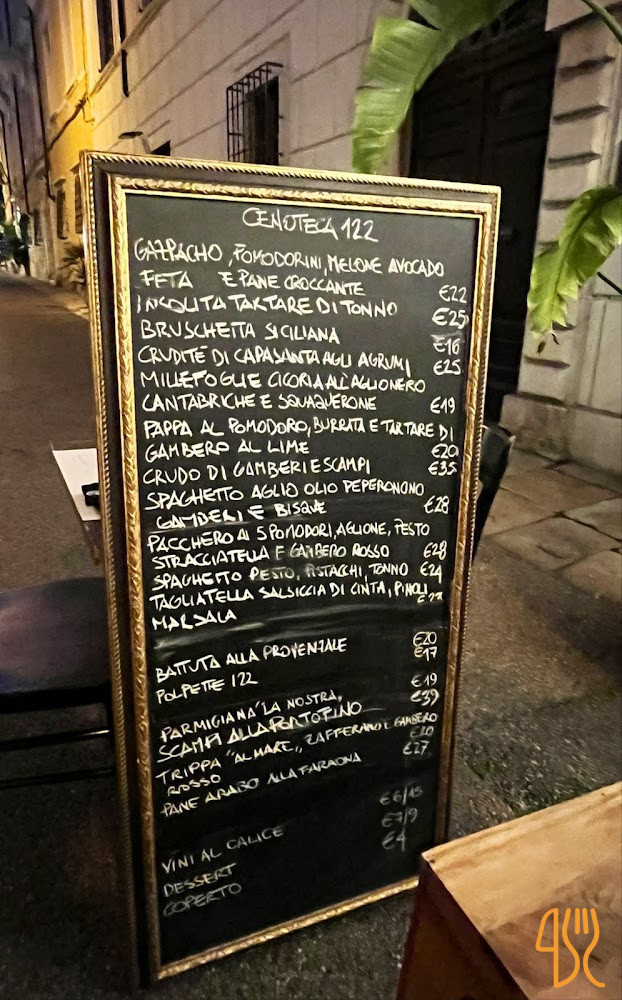 CENOTECA 122
GAZPACHO, POMODORINI, MELONE AVOCADO
FETA E PANE CROCCANTE €22
INSOLITA TARTARE DI TONNO €25
BRUSCHETTA SICILIANA €16
CRUDITÉ DI CAPASANTA AGLI AGRUMI €25
MILLEFOGLIE CICORIA ALL'AGLIONERO
CANTABRICHE E SQUAQUERONE €19
PAPPA AL POMODORO, BURRATA E TARTARE DI
GAMBERO AL LIME €20
CRUDO DI GAMBERI E SCAMPI €35
SPAGHETTO AGLIO OLIO PEPERONCINO
GAMBERI E BISQUE €28
PACCHERO AI 5 POMODORI, AGLIONE, PESTO
STRACCIATELLA E GAMBERO ROSSO €28
SPAGHETTO PESTO, PISTACCHI, TONNO €24
TAGLIATELLA SALSICCIA DI CINTA, PINOLI
MARSALA
BATTUTA ALLA PROVENZALE €20
POLPETTE 122 €17
PARMIGIANA "LA NOSTRA" €19
SCAMPI ALLA PORTOFINO €39
TRIPPA "AL MARE", ZAFFERANO E GAMBERO
ROSSO €20
PANE ARABO ALLA FARAONA €27
VINI AL CALICE €6/15
DESSERT €7/9
COPERTO €4